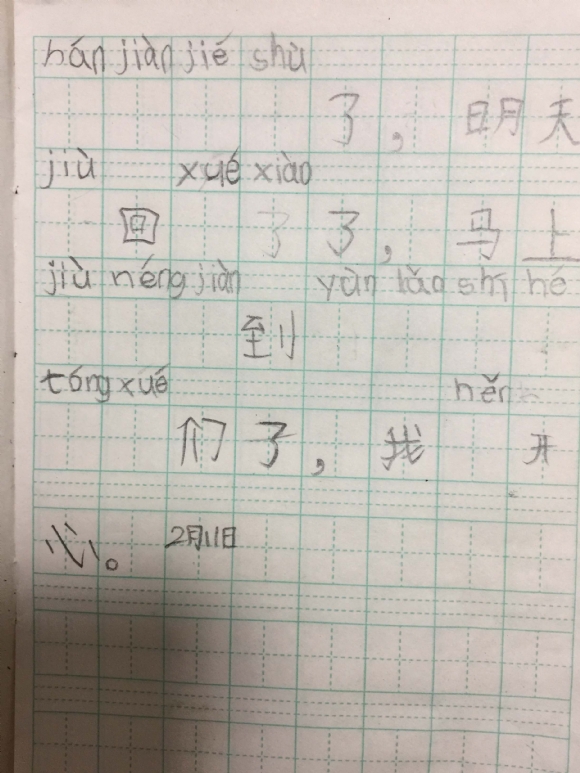 hán jiàn jié shù
了，明天
jiù xué xiào
回了了，马上
jiù néng jiàn yùn lǎn shī hé
到
tóng xué hěn
们了，我开
心。 2月11日